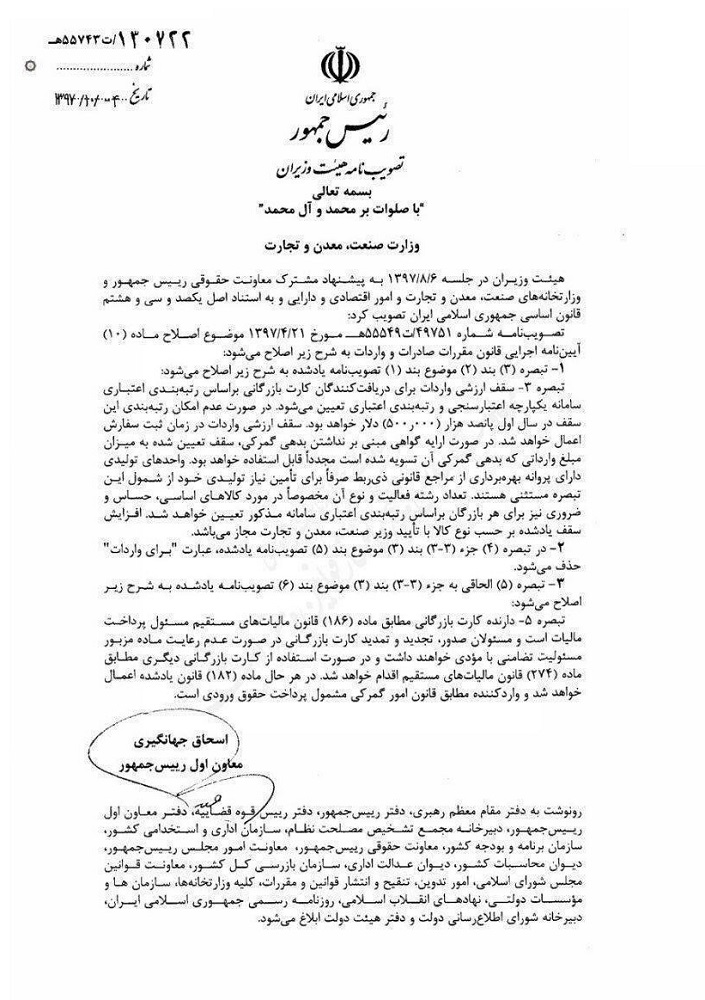 ۱۳۰۷۲۲/ت۵۵۷۴۳هـ
شماره ........................
تاریخ ۱۳۹۷/۱۰/۰۴
جمهوری اسلامی ایران
رئیس جمهور
تصویب نامه هیئت وزیران
بسمه تعالی
"با صلوات بر محمد و آل محمد"
وزارت صنعت، معدن و تجارت
هیئت وزیران در جلسه ۱۳۹۷/۸/۶ به پیشنهاد مشترک معاونت حقوقی رییس جمهور و
وزارتخانه‌های صنعت، معدن و تجارت و امور اقتصادی و دارایی و به استناد اصل یکصد و سی و هشتم
قانون اساسی جمهوری اسلامی ایران تصویب کرد:
تصویب‌نامه شماره ۴۹۷۵۱/ت۵۵۵۴۹هـ مورخ ۱۳۹۷/۴/۲۱ موضوع اصلاح ماده (۱۰)
آیین‌نامه اجرایی قانون مقررات صادرات و واردات به شرح زیر اصلاح می‌شود:
۱- تبصره (۳) بند (۲) موضوع بند (۱) تصویب‌نامه یادشده به شرح زیر اصلاح می‌شود:
تبصره ۳- سقف ارزشی واردات برای دریافت‌کنندگان کارت بازرگانی براساس رتبه‌بندی اعتباری
سامانه یکپارچه اعتبارسنجی و رتبه‌بندی اعتباری تعیین می‌شود. در صورت عدم امکان رتبه‌بندی این
سقف در سال اول پانصد هزار (۵۰۰٫۰۰۰) دلار خواهد بود. سقف ارزشی واردات در زمان ثبت سفارش
اعمال خواهد شد. در صورت ارایه گواهی مبنی بر نداشتن بدهی گمرکی، سقف تعیین شده به میزان
مبلغ وارداتی که بدهی گمرکی آن تسویه شده است مجدداً قابل استفاده خواهد بود. واحدهای تولیدی
دارای پروانه بهره‌برداری از مراجع قانونی ذی‌ربط صرفاً برای تأمین نیاز تولیدی خود از شمول این
تبصره مستثنی هستند. تعداد رشته فعالیت و نوع آن مخصوصاً در مورد کالاهای اساسی، حساس و
ضروری نیز برای هر بازرگان براساس رتبه‌بندی اعتباری سامانه مذکور تعیین خواهد شد. افزایش
سقف یادشده بر حسب نوع کالا با تأیید وزیر صنعت، معدن و تجارت مجاز می‌باشد.
۲- در تبصره (۴) جزء (۳-۳) بند (۳) موضوع بند (۵) تصویب‌نامه یادشده، عبارت "برای واردات"
حذف می‌شود.
۳- تبصره (۵) الحاقی به جزء (۳-۳) بند (۳) موضوع بند (۶) تصویب‌نامه یادشده به شرح زیر
اصلاح می‌شود:
تبصره ۵- دارنده کارت بازرگانی مطابق ماده (۱۸۶) قانون مالیات‌های مستقیم مسئول پرداخت
مالیات است و مسئولان صدور، تجدید و تمدید کارت بازرگانی در صورت عدم رعایت ماده مزبور
مسئولیت تضامنی با مؤدی خواهند داشت و در صورت استفاده از کارت بازرگانی دیگری مطابق
ماده (۲۷۴) قانون مالیات‌های مستقیم اقدام خواهد شد. در هر حال ماده (۱۸۲) قانون یادشده اعمال
خواهد شد و واردکننده مطابق قانون امور گمرکی مشمول پرداخت حقوق ورودی است.
اسحاق جهانگیری
معاون اول رییس‌جمهور
رونوشت به دفتر مقام معظم رهبری، دفتر رییس‌جمهور، دفتر رییس قوه قضاییه، دفتر معاون اول
رییس‌جمهور، دبیرخانه مجمع تشخیص مصلحت نظام، سازمان اداری و استخدامی کشور،
سازمان برنامه و بودجه کشور، معاونت حقوقی رییس‌جمهور، معاونت امور مجلس رییس‌جمهور،
دیوان محاسبات کشور، دیوان عدالت اداری، سازمان بازرسی کل کشور، معاونت قوانین
مجلس شورای اسلامی، امور تدوین، تنقیح و انتشار قوانین و مقررات، کلیه وزارتخانه‌ها، سازمان ها و
مؤسسات دولتی، نهادهای انقلاب اسلامی، روزنامه رسمی جمهوری اسلامی ایران،
دبیرخانه شورای اطلاع‌رسانی دولت و دفتر هیئت دولت ابلاغ می‌شود.